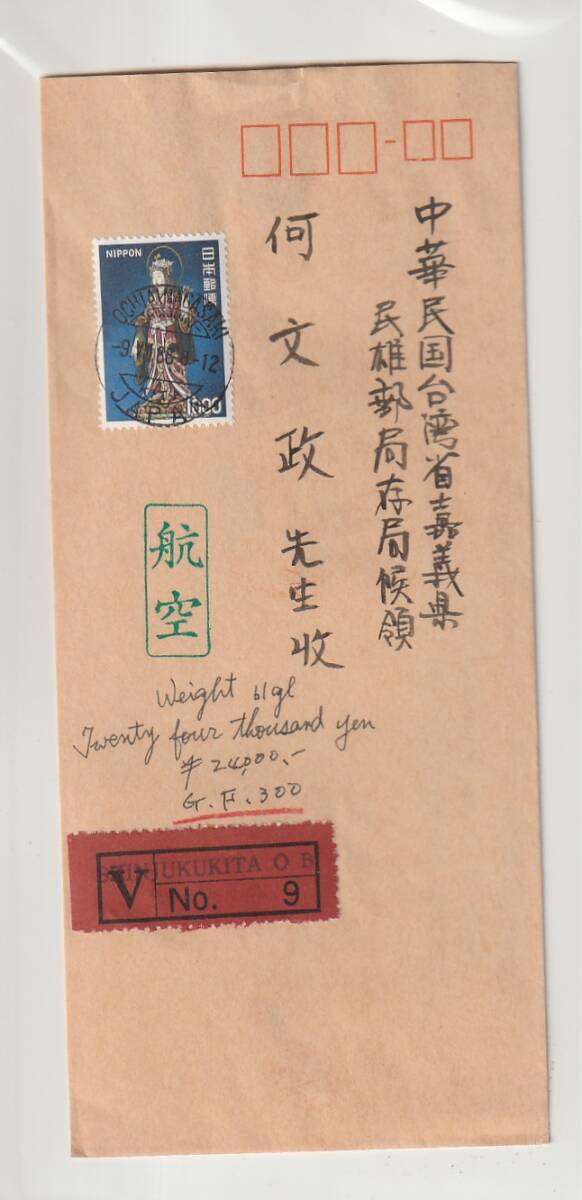 中華民国台湾省嘉義県
民雄郵局存局候領
何文政先生收
NIPPON
日本郵便
1000
JAPAN
航空
Weight 61g
Twenty four thousand yen
¥24,000.-
G.F.300
SHINJUKUKITA O B
V
No. 9